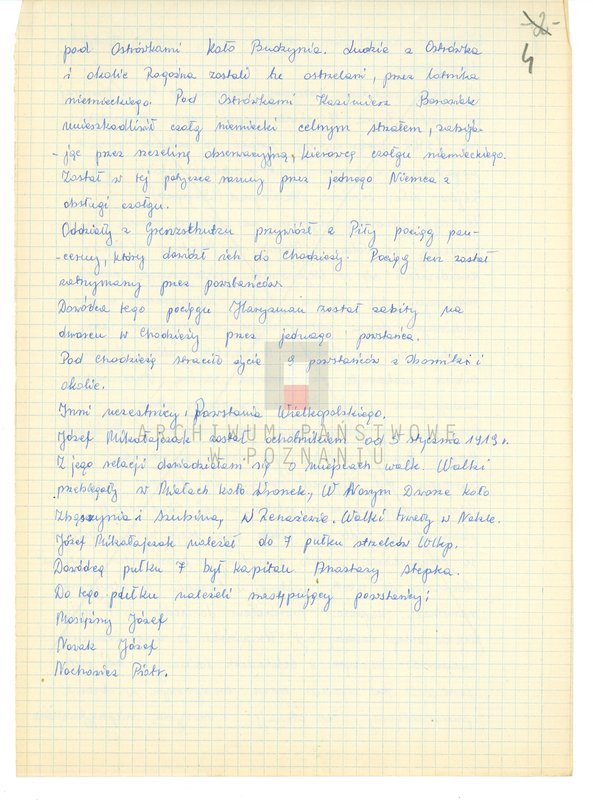 -2-
4
pod Ostrówkami koło Budzynia. Ludzie z Ostrówka
i okolic Rogoźna zostali tu ostrzelani, przez lotnika
niemieckiego. Pod Ostrówkami Kazimierz Banaszak
unieszkodliwił czołg niemiecki celnym strzałem, zabija-
-jąc przez szczelinę obserwacyjną, kierowcę czołgu niemieckiego.
Został w tej potyczce ranny przez jednego Niemca z
obsługi czołgu.
Oddziały z Grenzschutzu przywiózł z Piły pociąg pan-
-cerny, który dowiózł ich do Chodzieży. Pociąg ten został
zatrzymany przez powstańców
Dowódca tego pociągu został zabity na
dworcu w Chodzieży przez jednego powstańca.
Pod Chodzieżą straciło życie 9 powstańców z Obornik i
okolic.
Inni uczestnicy Powstania Wielkopolskiego.
Józef Mikołajczak został ochotnikiem od 5 stycznia 1919 r.
Z jego relacji dowiedziałam się o miejscach walk. Walki
przebiegały w Miałach koło Wronek, W Nowym Dworze koło
Zbąszynia i Szubina, w . Walki trwały w Nakle.
Józef Mikołajczak należał do 7 pułku strzelców Wlkp.
Dowódcą pułku 7 był kapitan Anastazy Stepka.
Do tego pułku należeli następujący powstańcy:
Mosiężny Józef
Nowak Józef
Nochowicz Piotr.
ARCHIWUM PAŃSTWOWE
W POZNANIU